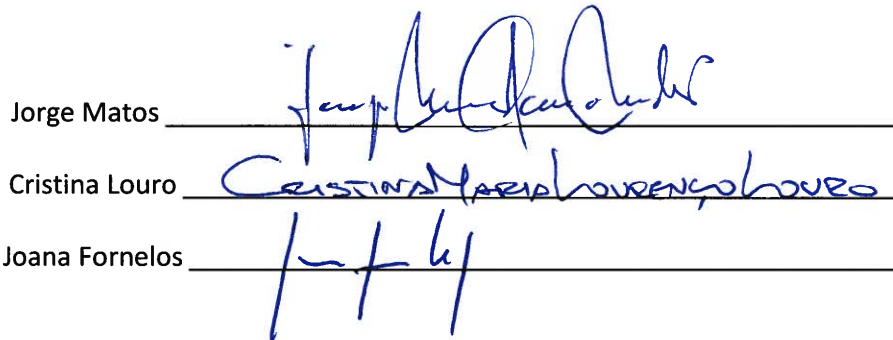 Jorge Matos
Cristina Louro Cristina Maria Lourenço Louro
Joana Fornelos